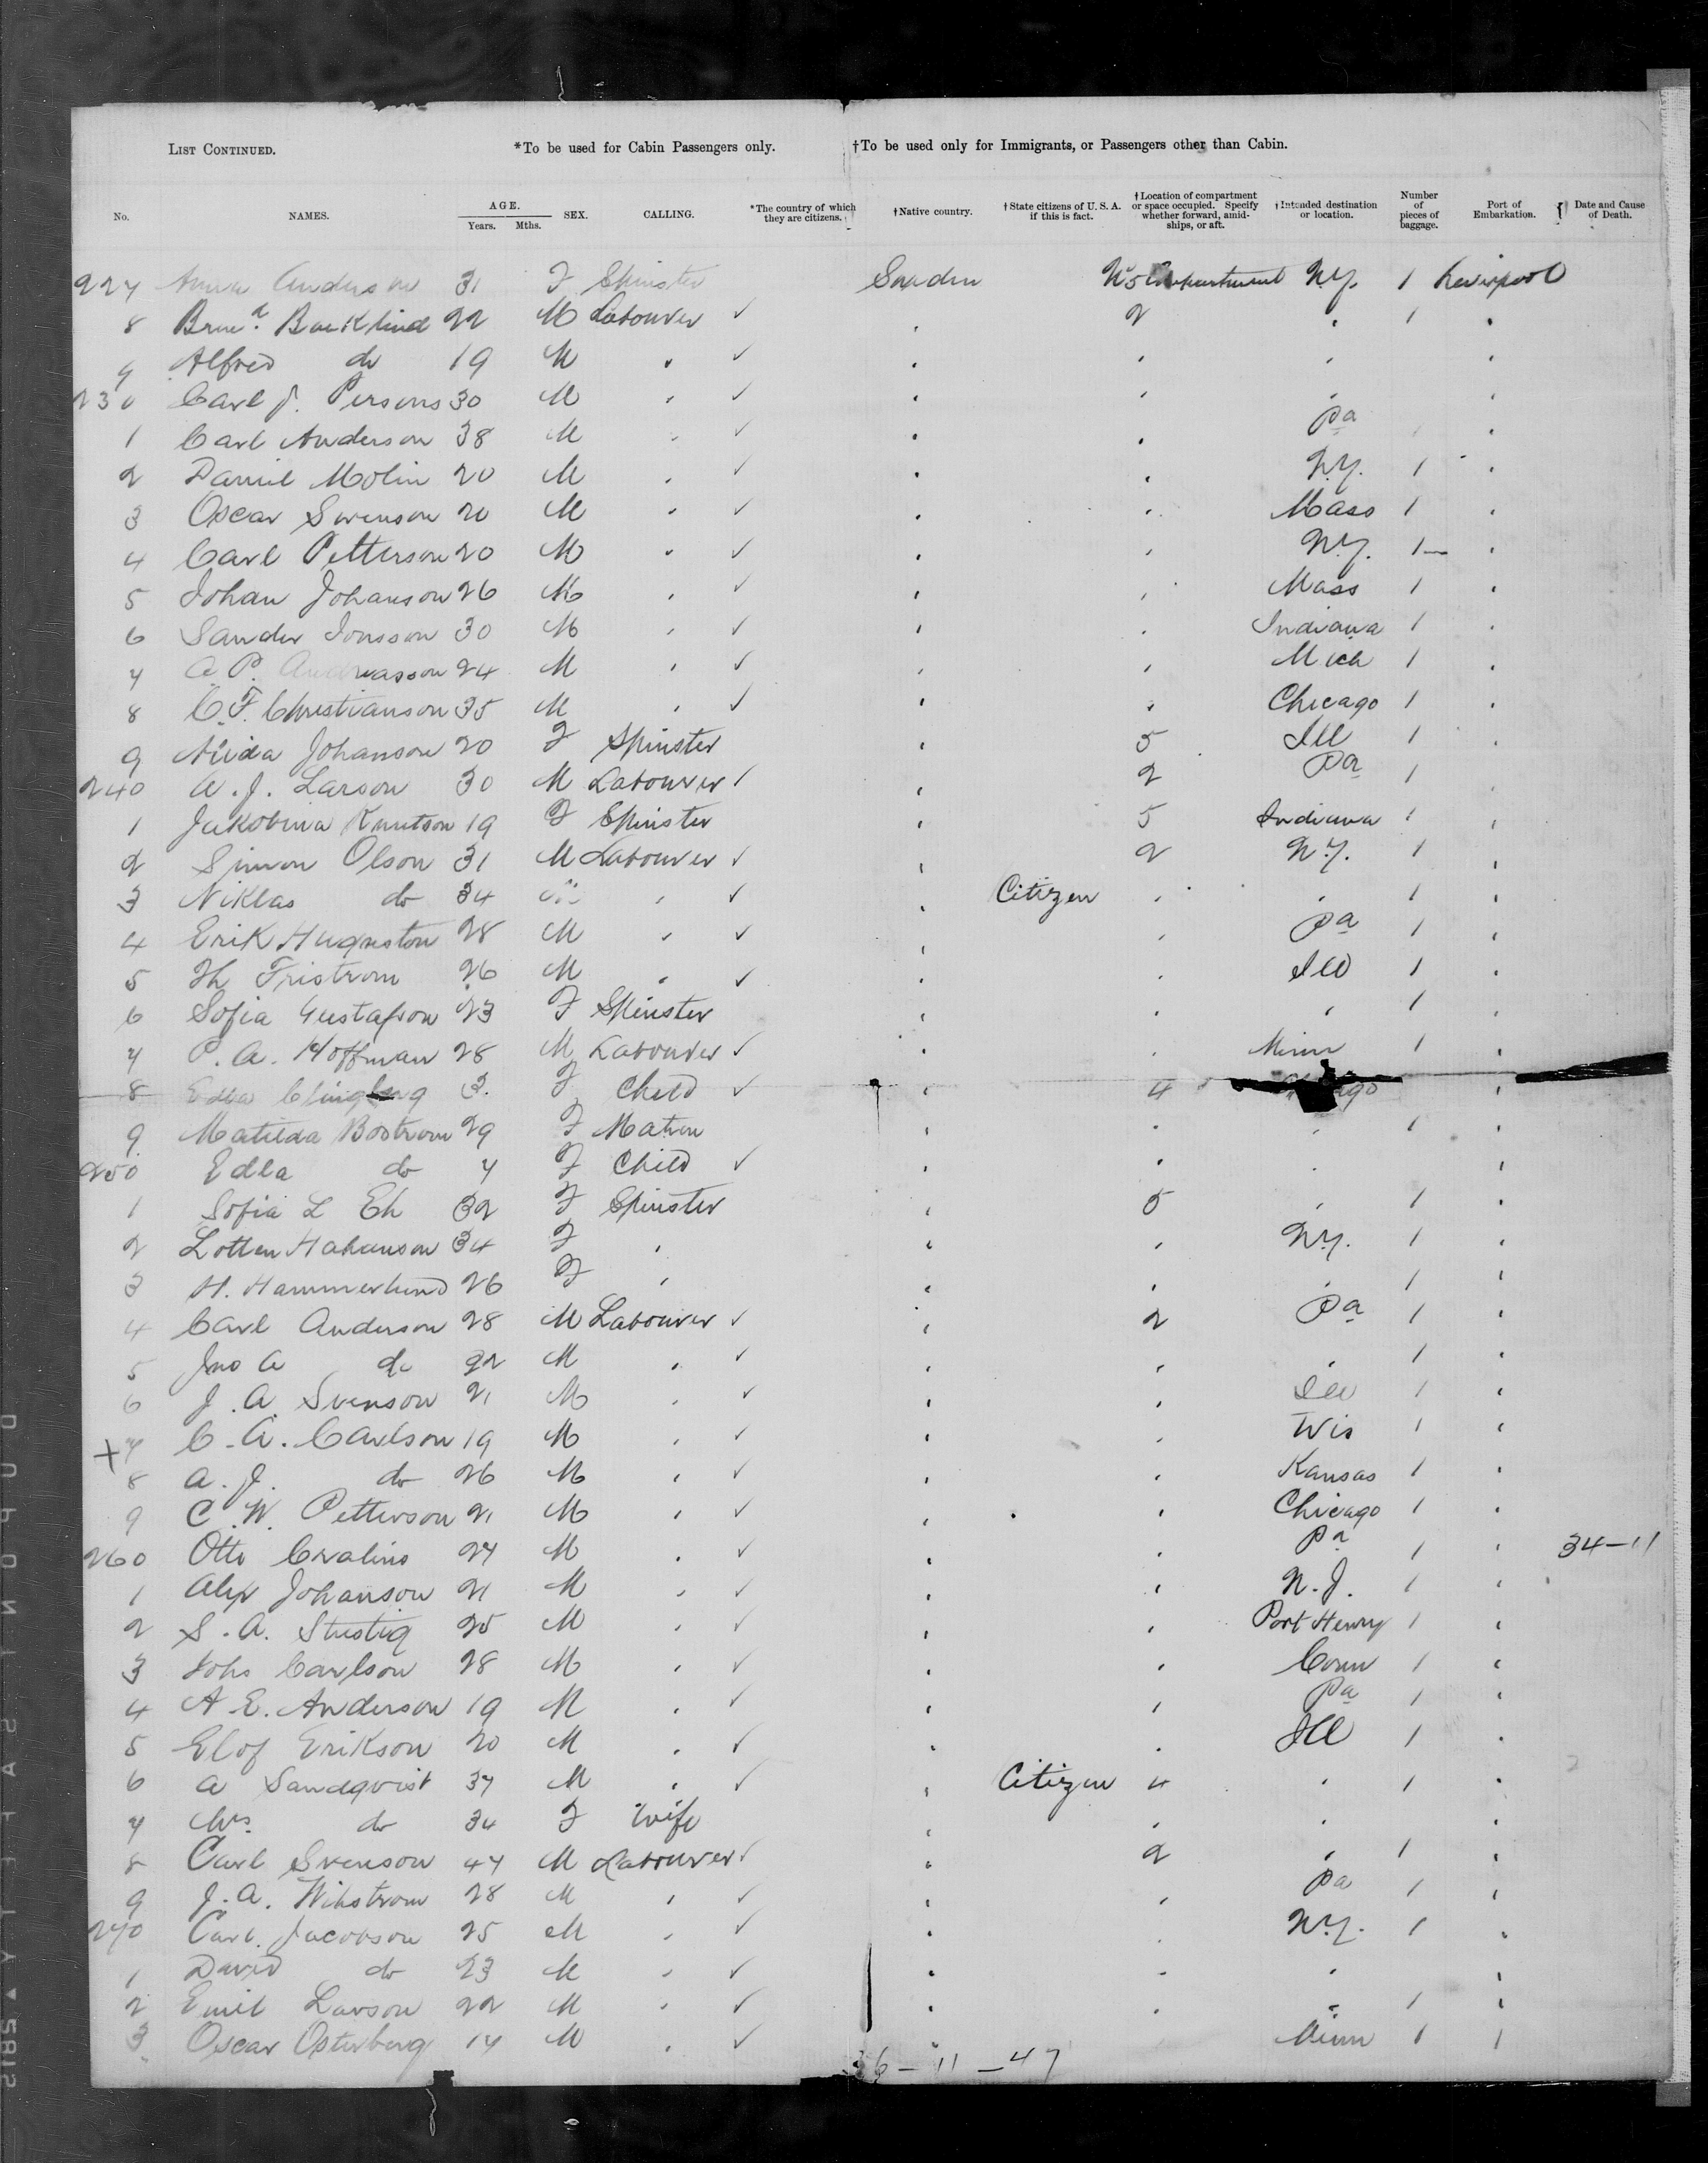 LIST CONTINUED. *To be used for Cabin Passengers only. †To be used only for Immigrants, or Passengers other than Cabin.
No. NAMES. AGE. Years. Mths. SEX. CALLING. *The country of which they are citizens. †Native country. †State citizens of U. S. A. if this is fact. †Location of compartment or space occupied. Specify whether forward, amid-ships, or aft. †Intended destination or location. Number of pieces of baggage. Port of Embarkation. Date and Cause of Death.
227 Anna Anderson 31 F Spinster Sweden No 5 Compartment N.Y. 1 Liverpool
8 Backlind 22 M Labourer ✓ " 2 " 1 "
9 Alfred do 19 M " ✓ " " " "
230 Carl J. Persons 30 M " ✓ " " " "
1 Carl Anderson 38 M " ✓ " " Pa "
2 Daniel Molin 20 M " ✓ " " N.Y. 1 "
3 Oscar Swenson 20 M " ✓ " " Mass 1 "
4 Carl Petterson 20 M " ✓ " " N.Y. 1 "
5 Johan Johanson 26 M " ✓ " " Mass 1 "
6 Sander Jonsson 30 M " ✓ " " Indiana 1 "
7 A. P. Andreasson 24 M " ✓ " " Mich 1 "
8 C. F. Christianson 35 M " ✓ " " Chicago 1 "
9 Alida Johanson 20 F Spinster " 5 Ill 1 "
240 A. J. Larson 30 M Labourer ✓ " 2 Pa 1 "
1 Jakobina Knutson 19 F Spinster " 5 Indiana 1 "
2 Simon Olson 31 M Labourer ✓ " 2 N.Y. 1 "
3 Niklas do 34 " ✓ " Citizen " " 1 "
4 Erik Hugnston 28 M " ✓ " " Pa 1 "
5 Th Fristrom 26 M " ✓ " " Ill 1 "
6 Sofia Gustafson 23 F Spinster " " " 1 "
7 P. A. Hoffman 28 M Labourer ✓ " " Minn 1 "
8 Edla 3 F Child ✓ " 4 "
9 Matilda Bostrom 29 F Matron " " " 1 "
250 Edla do 7 F Child ✓ " " " "
1 Sofia L Ek 32 F Spinster " 5 " 1 "
2 Lotten Hakanson 34 F " " " N.Y. 1 "
3 H. Hammerlund 26 F " " " " 1 "
4 Carl Anderson 28 M Labourer ✓ " 2 Pa 1 "
5 Jno A do 22 M " ✓ " " " 1 "
6 J. A. Svenson 21 M " ✓ " " Ill 1 "
+7 C. A. Carlson 19 M " ✓ " " Wis 1 "
8 A. J. do 26 M " ✓ " " Kansas 1 "
9 C. W. Petterson 21 M " ✓ " " Chicago 1 "
260 Otto 27 M " ✓ " " Pa 1 " 34-11
1 Alex Johanson 21 M " ✓ " " N.J. 1 "
2 S. A. 25 M " ✓ " " Port Henry 1 "
3 Johs Carlson 28 M " ✓ " " Conn 1 "
4 A E. Anderson 19 M " ✓ " " Pa 1 "
5 Elof Erikson 20 M " ✓ " " Ill 1 "
6 A Sandqvist 37 M " ✓ " Citizen 4 " 1 "
7 Mrs. do 34 F Wife " " " "
8 Carl Svenson 47 M Labourer ✓ " 2 " 1 "
9 J. A. Wikstrom 28 M " ✓ " " Pa 1 "
270 Carl. Jacobson 25 M " ✓ " " N.Y. 1 "
1 David do 23 M " ✓ " " " "
2 Emil Larson 22 M " ✓ " " " 1 "
3 Oscar Osterberg 17 M " ✓ " Minn 1 "
36-11-47